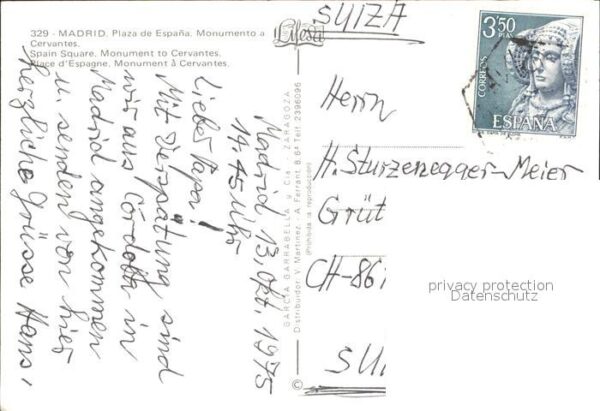 329 - MADRID. Plaza de España. Monumento a
Cervantes.
Spain Square. Monument to Cervantes.
Place d'Espagne. Monument à Cervantes.
Madrid 13. Okt. 1975
14.45 Uhr
Lieber Papa!
Mit Verspätung sind
wir aus Cordoba in
Madrid angekommen
u. senden von hier
herzliche Grüsse Hans,
GARCIA GARRABELLA y Cia. ZARAGOZA
Distribuidor: V. Martinez - A. Ferrant, 8 6ª Telef. 2396096
(Prohibida la reproducción)
©
SUIZA
3'50
PTAS
CORREOS
ESPAÑA
Herrn
H. Sturzenegger-Meier
Grüt
CH-861
SU
privacy protection
Datenschutz